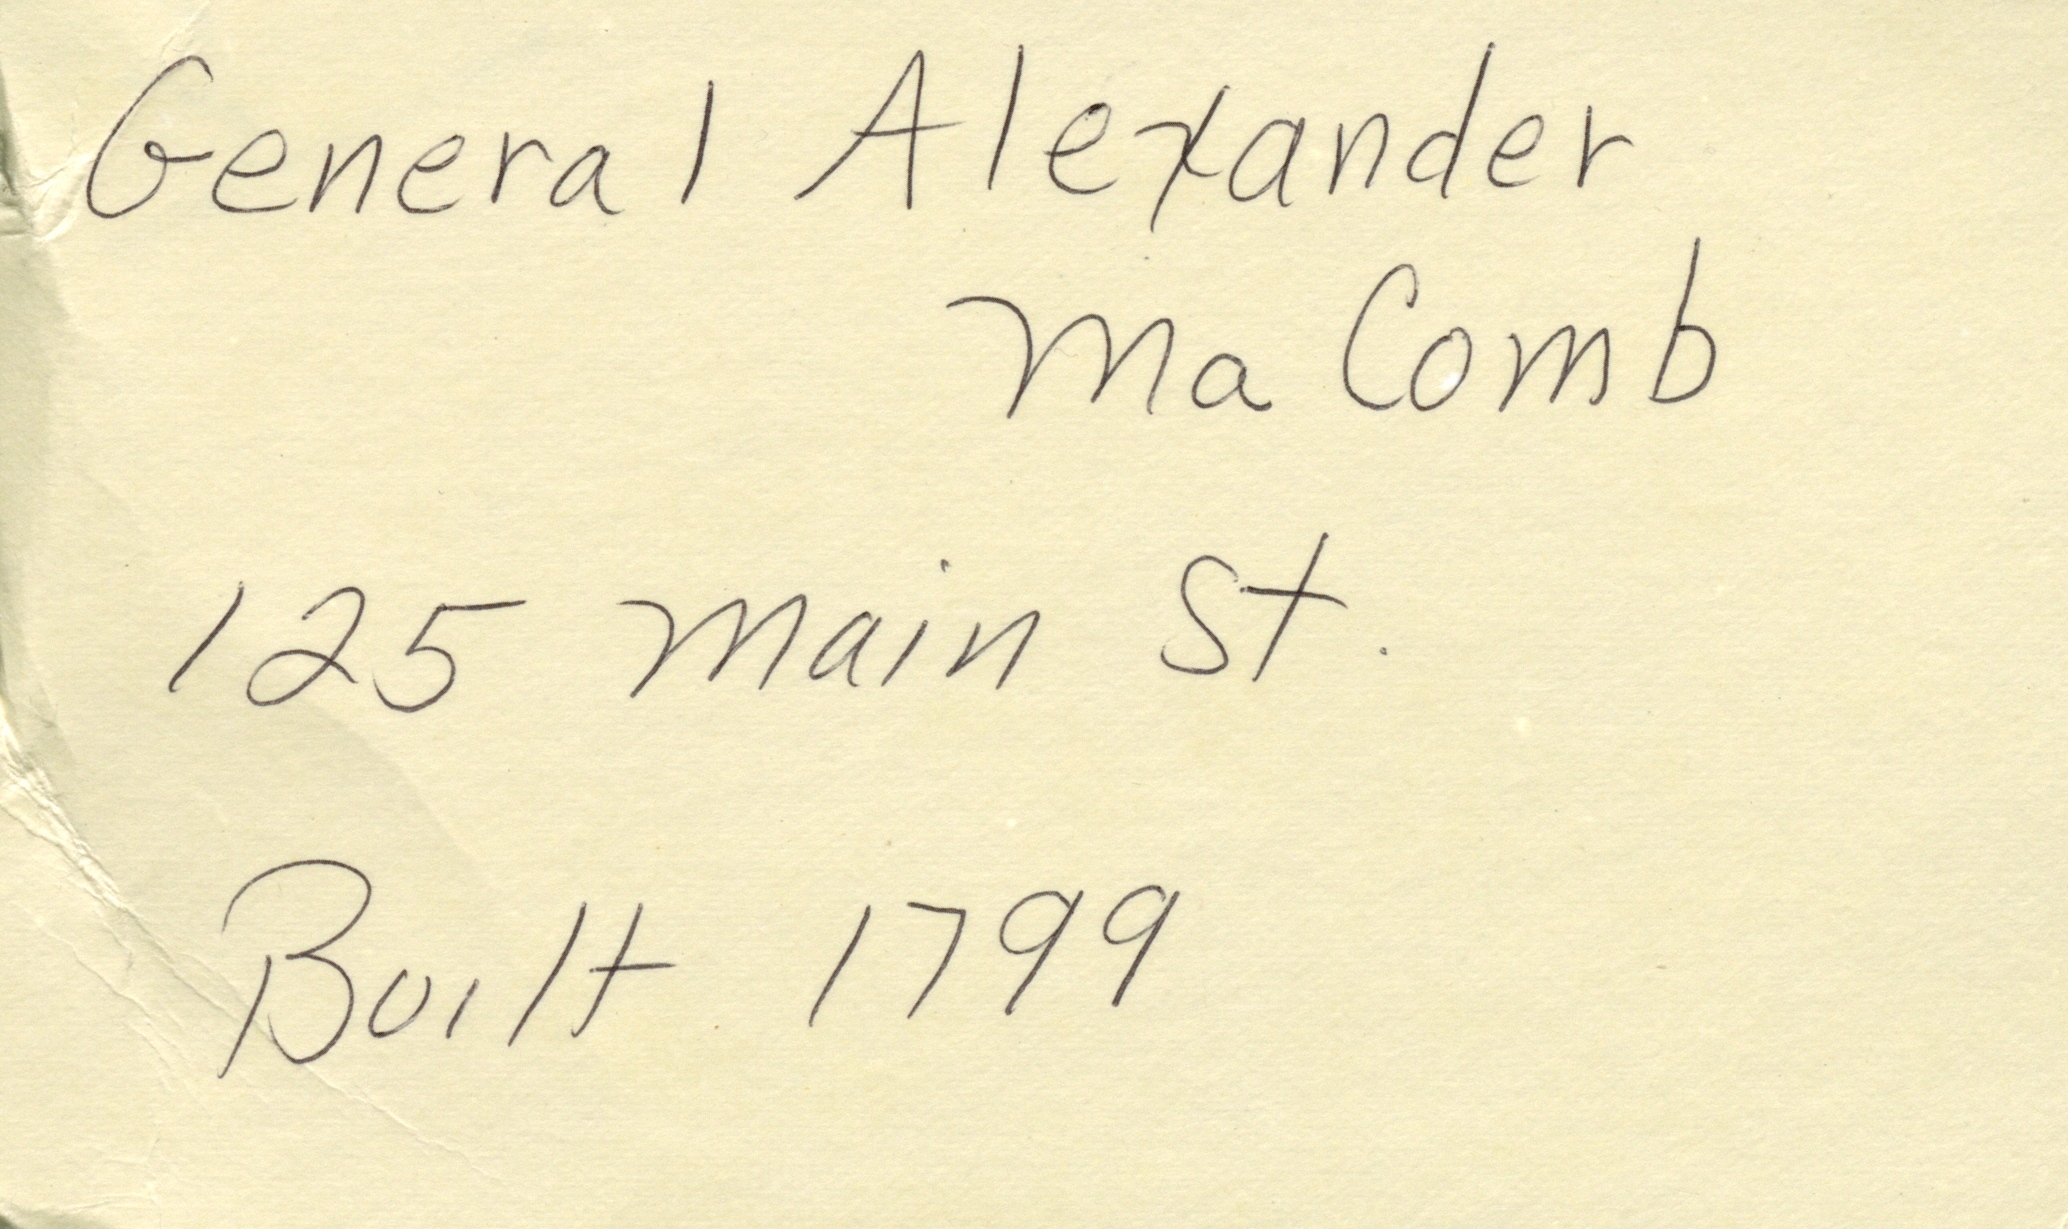 General Alexander
Ma Comb
125 Main St.
Built 1799